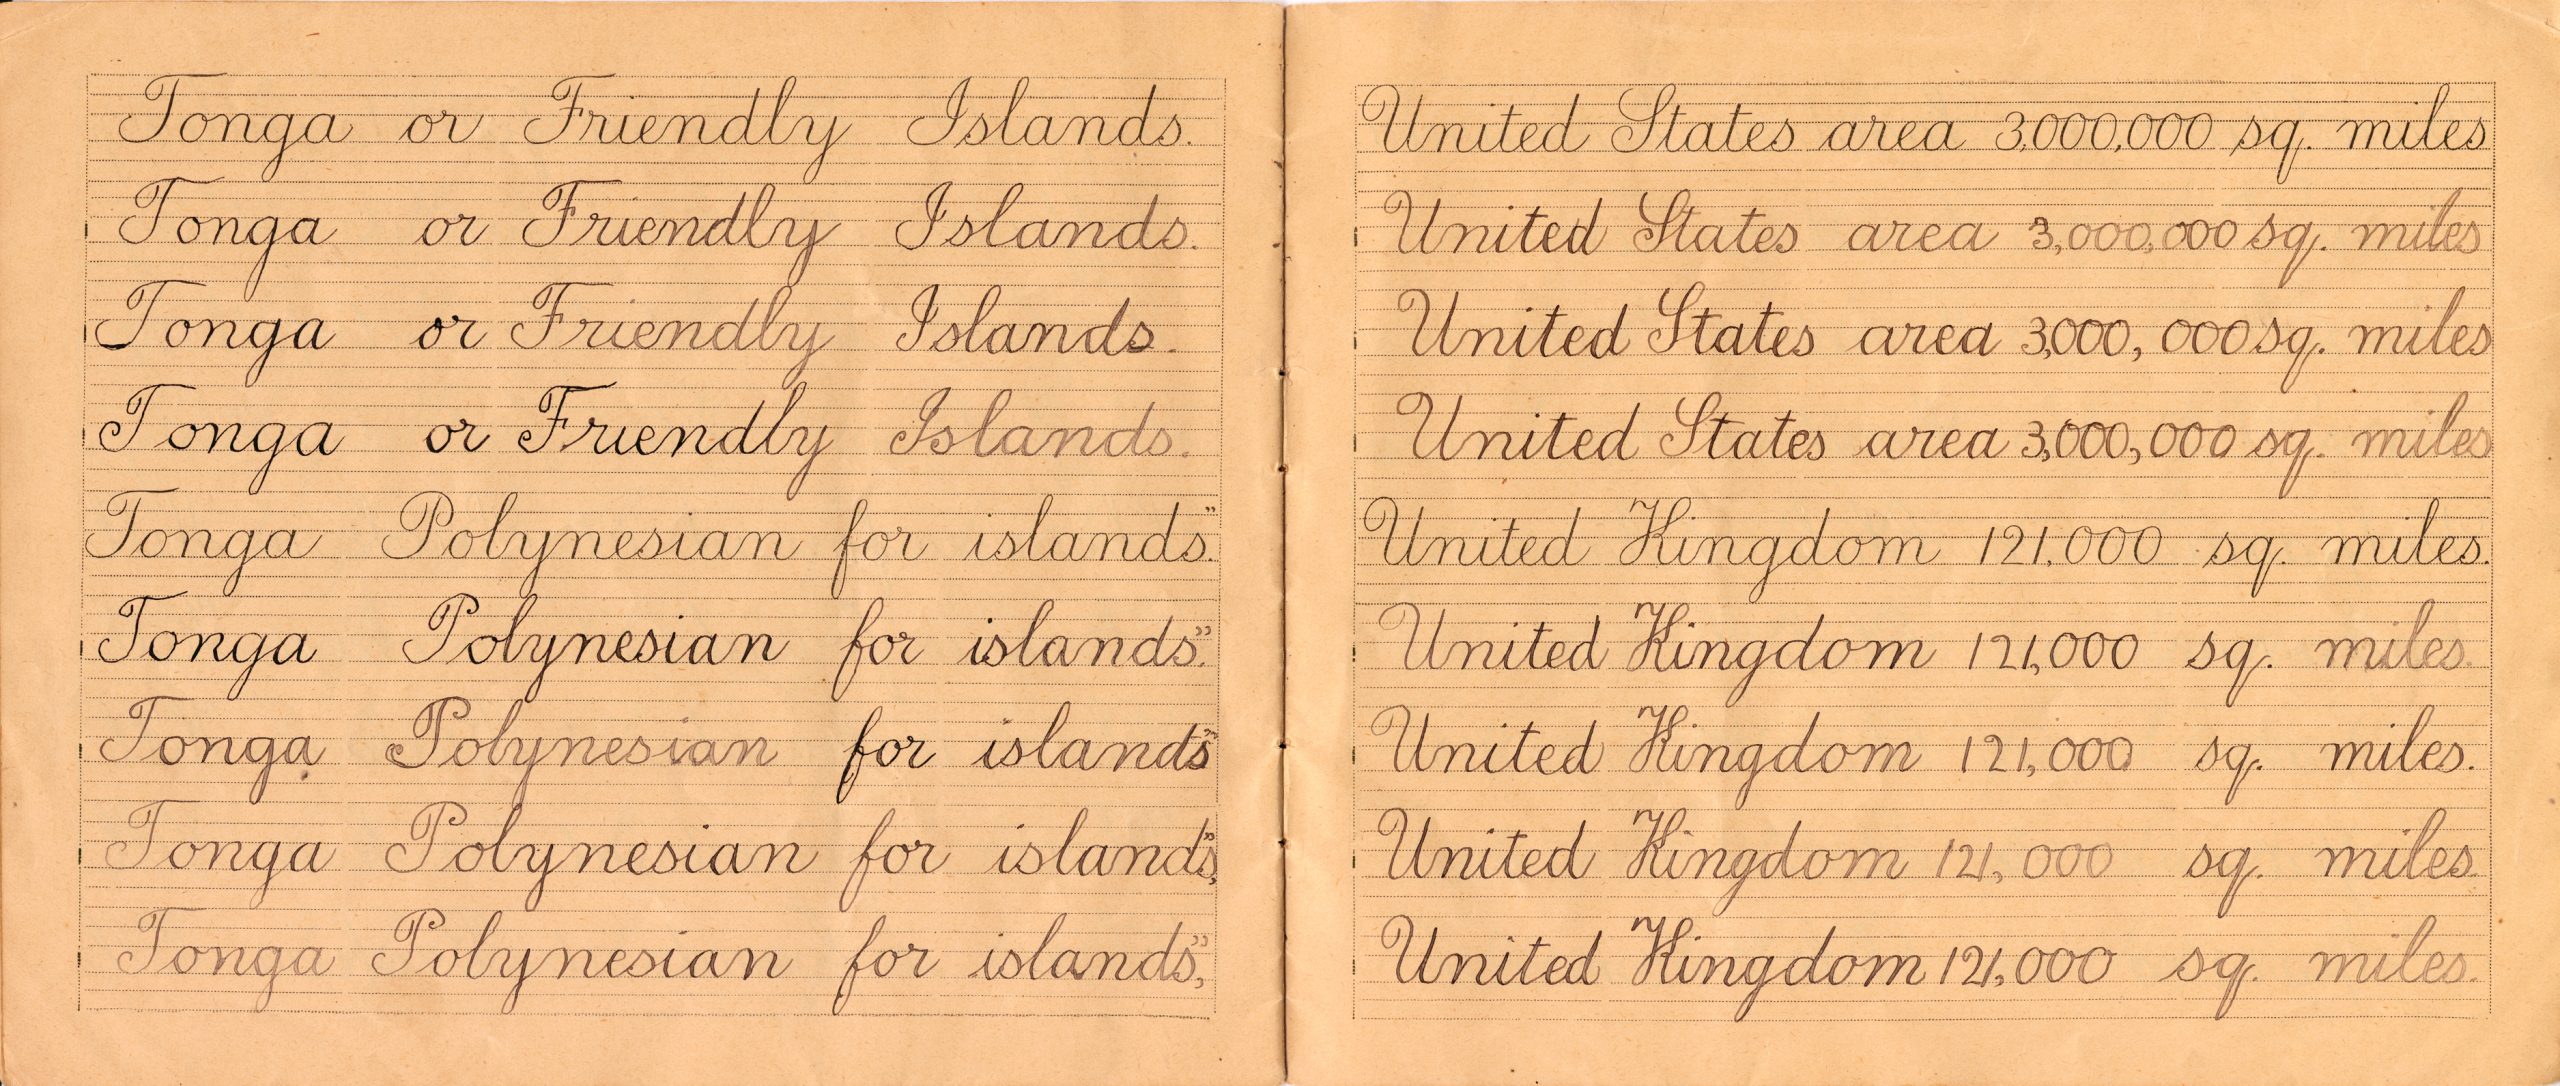 Tonga or Friendly Islands.
Tonga or Friendly Islands.
Tonga or Friendly Islands.
Tonga or Friendly Islands.
Tonga Polynesian for islands."
Tonga Polynesian for islands."
Tonga Polynesian for islands"
Tonga Polynesian for islands",
Tonga Polynesian for islands",
United States area 3,000,000 sq. miles
United States area 3,000,000 sq. miles
United States area 3,000, 000 sq. miles
United States area 3,000,000 sq. miles
United Kingdom 121,000 sq. miles.
United Kingdom 121,000 sq. miles.
United Kingdom 121,000 sq. miles.
United Kingdom 121, 000 sq. miles.
United Kingdom 121,000 sq. miles.